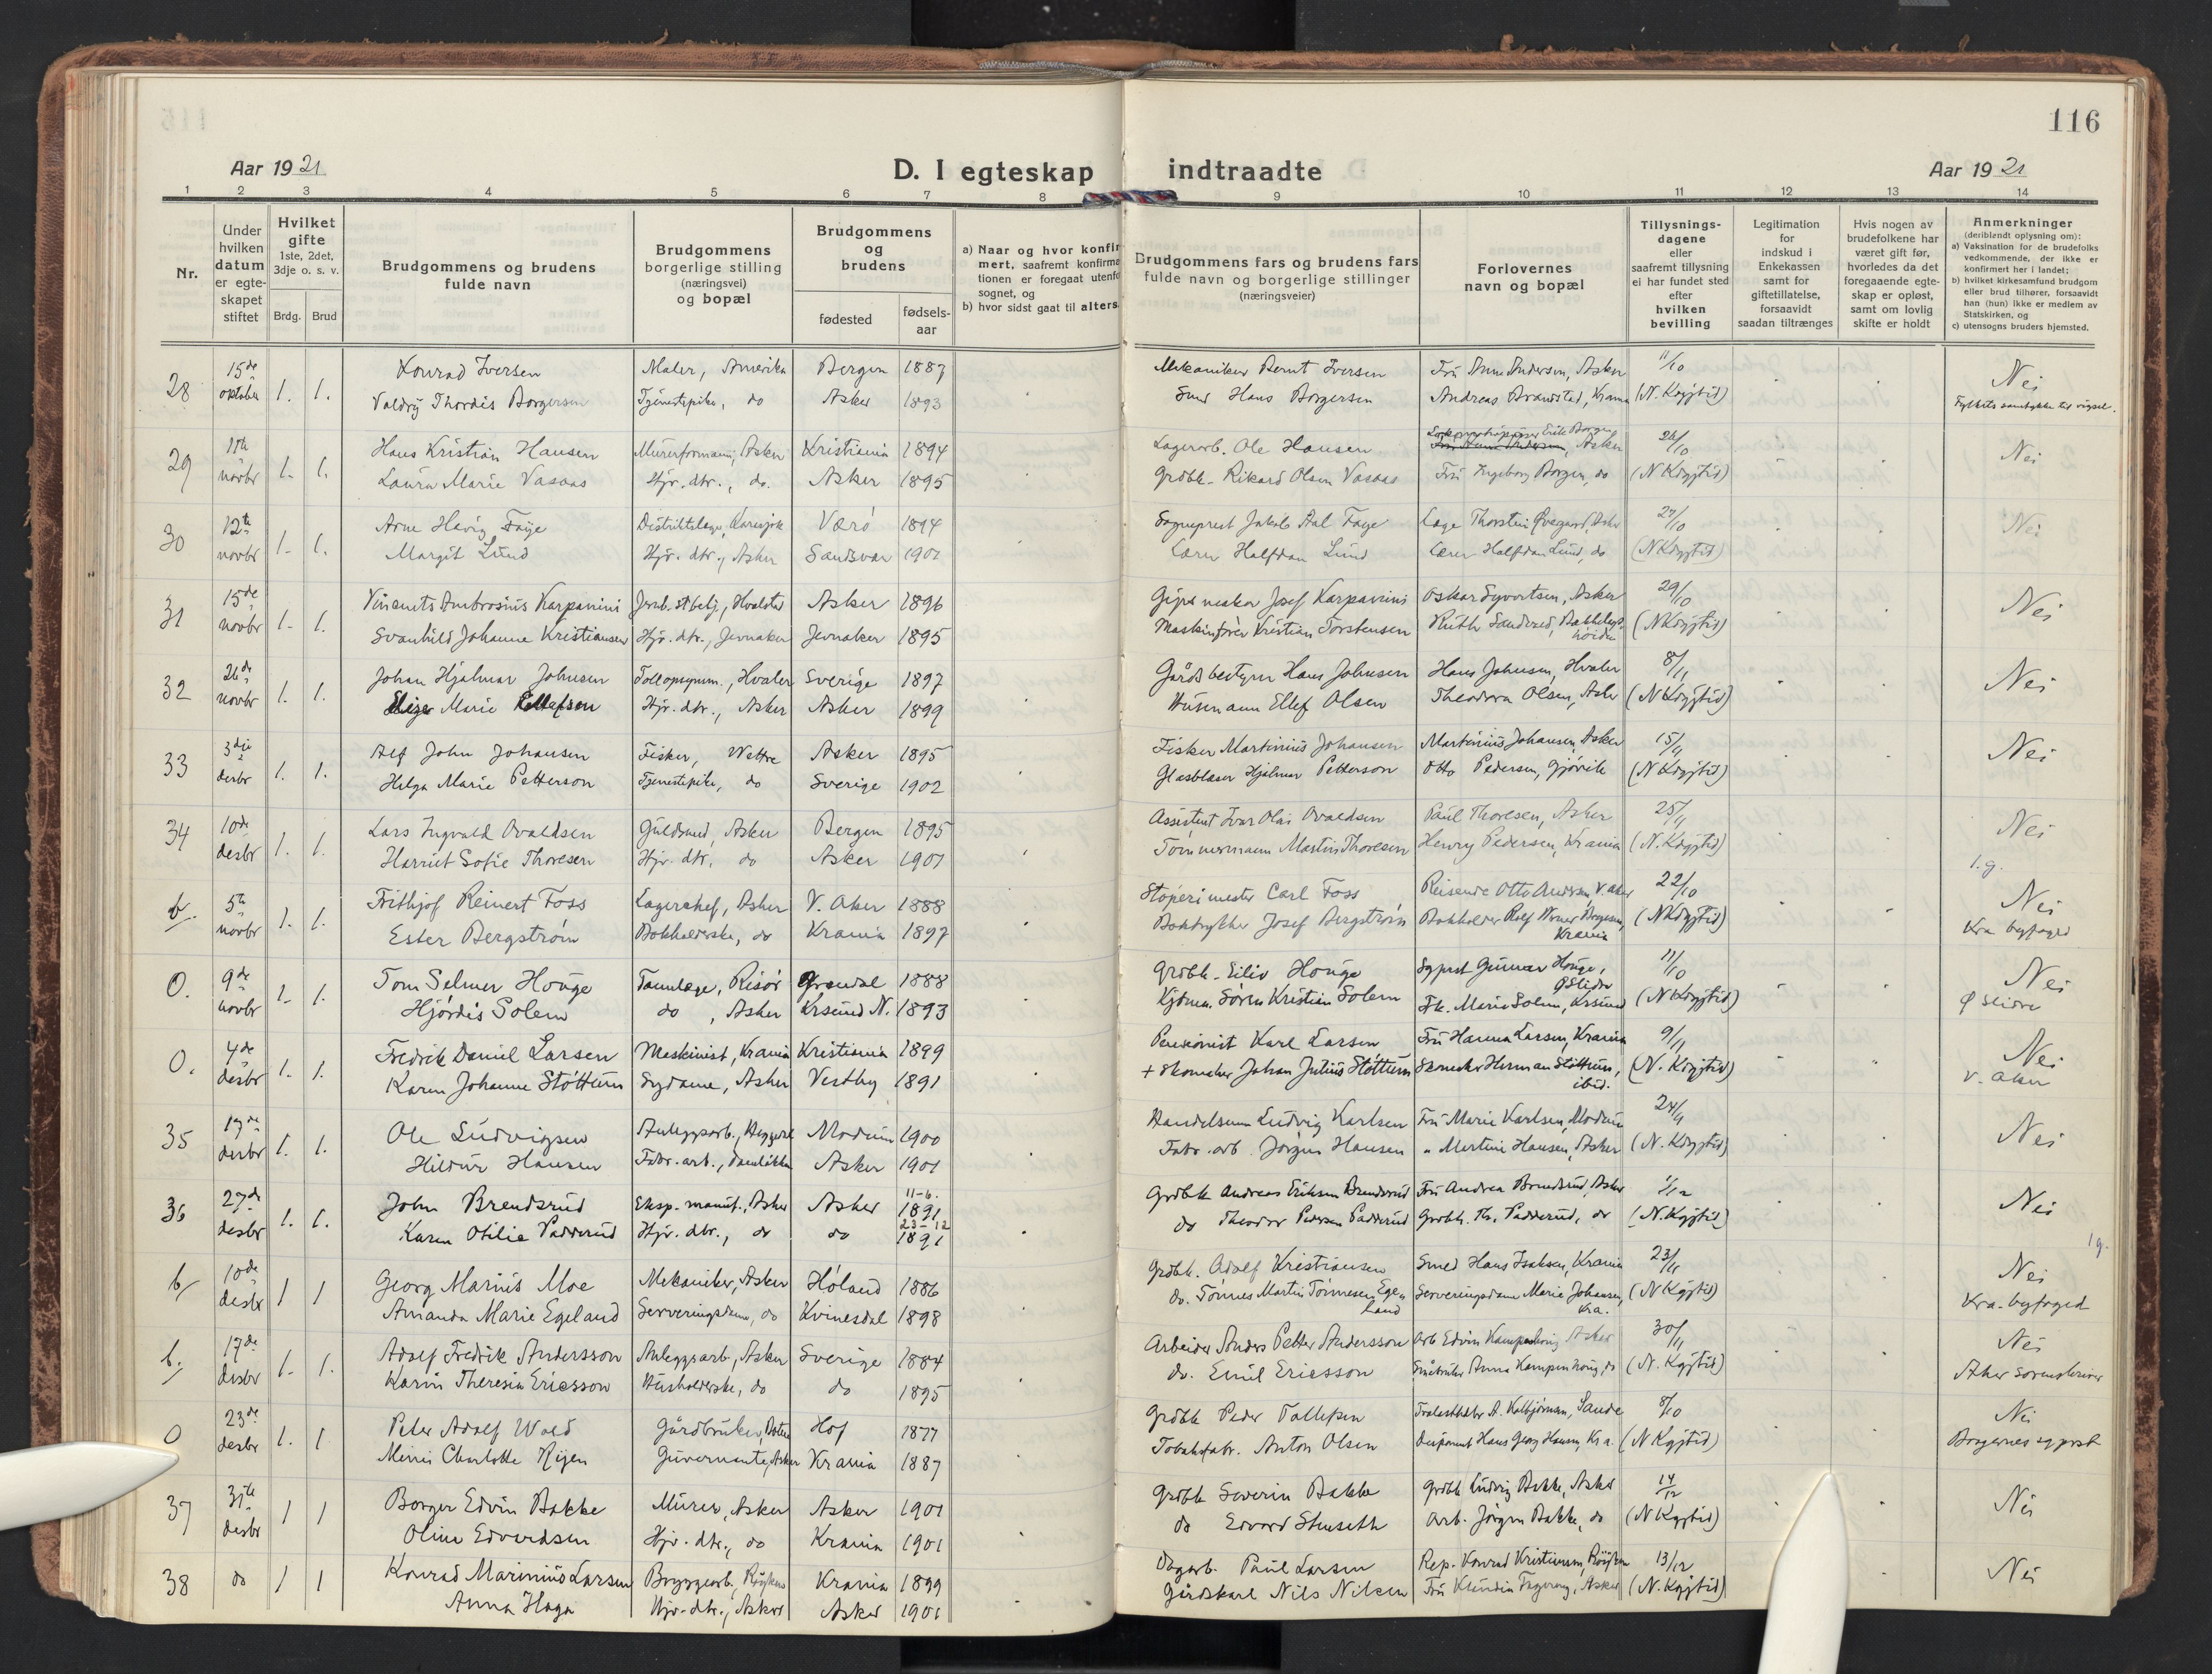 116
Aar 1921
D. I egteskap indtraadte
Aar 1921
1 2 3 4 5 6 7 8 9 10 11 12 13 14
Nr.
Under hvilken datum er egteskapet stiftet
Hvilket gifte 1ste, 2det, 3dje o. s. v.
Brdg. Brud
Brudgommens og brudens fulde navn
Brudgommens borgerlige stilling (næringsvei) og bopæl
Brudgommens og brudens
fødested
fødsels-aar
a) Naar og hvor konfir
mert, saafremt konfirma
tionen er foregaat utenfo
sognet, og
b) hvor sidst gaat til alters
Brudgommens fars og brudens fars
fulde navn og borgerlige stillinger
(næringsveier)
Forlovernes
navn og bopæl
Tillysnings-
dagene
eller
saafremt tillysning
ei har fundet sted
efter
hvilken
bevilling
Legitimation
for
indskud i
Enkekassen
samt for
giftetillatelse,
forsaavidt
saadan tiltrænges
Hvis nogen av
brudefolkene har
været gift før,
hvorledes da det
foregaaende egte-
skap er opløst,
samt om lovlig
skifte er holdt
Anmerkninger
(deriblandt oplysning om):
a) Vaksination for de brudefolks
vedkommende, der ikke er
konfirmert her i landet;
b) hvilket kirkesamfund brudgom
eller brud tilhører, forsaavidt
han (hun) ikke er medlem av
Statskirken, og
c) utensogns bruders hjemsted.
28 15de oktober 1. 1. Konrad Iversen Maler, Amerika Bergen 1887 Mekaniker Bernt Iversen Fru Anna Andersen, Asker 11/10 Nei
Valdry Thordis Borgersen Tjenestepike, do Asker 1893 Smed Hans Borgersen Andreas Brandstad, Krania (N. Kdgjtid) Fylkets samtykke til vigsel.
29 11te novbr 1. 1. Hans Kristian Hansen Murerformann, Asker Kristiania 1894 Lagerarb. Ole Hansen Erik Borgen, Asker 26/10 Nei
Laura Marie Vasaas Hjv. dtr., do. Asker 1895 Grdbk. Rikard Olsen Vasaas Fru Ingeborg Borgen, do (N Kdgjtid)
30 12te novbr 1. 1. Arne Høvig Faye Distriktslæge, Karasjok Værö 1894 Sogneprest Jakob Aal Faye Læge Thorstein Øvergaard, Asker 27/10 Nei
Margit Lund Hjv. dtr., Asker Sandsvær 1901 Lærer Halfdan Lund Lærer Halfdan Lund, do (N Kdgjtid)
31 15de novbr 1. 1. Vincents Ambrosius Karpanini Jernb. st betj., Hvalstad Asker 1896 Gipsmaker Josef Karpanini Oskar Syvertsen, Asker 29/10 Nei
Svanhild Johanne Kristiansen Hjv. dtr., Jevnaker Jevnaker 1895 Maskinfører Kristian Torstensen Ruth Sanderud, Bekkelagshöiden (N Kdgjtid)
32 26de novbr 1. 1. Johan Hjalmar Johnsen Tollopsynm., Hvaler Sverige 1897 Gårdsbestyrer Hans Johnsen Hans Johnsen, Hvaler 8/11 Nei
Marie Ellefsen Hjv. dtr., Asker Asker 1899 Husmann Ellef Olsen Theodora Olsen, Asker (N Kdgjtid)
33 3dje desbr 1. 1. Alf John Johansen Fisker, Vettre Asker 1895 Fisker Martinius Johansen Martinius Johansen, Asker 15/11 Nei
Helga Marie Petterson Tjenestepike, do Sverige 1902 Glasblåser Hjalmar Petterson Otto Pedersen, Gjövik (N Kdgjtid)
34 10de desbr 1. 1. Lars Ingvald Ovaldsen Guldsmed, Asker Bergen 1895 Assistent Ivar Olai Ovaldsen Paul Thoresen, Asker 25/11 Nei
Harriet Sofie Thoresen Hjv. dtr, do Asker 1901 Tömmermann Martin Thoresen Henry Pedersen, Krania (N. Kdgjtid)
b. 5te novbr 1. 1. Frithjof Reinert Foss Lagerchef, Asker V. Aker 1888 Stöperimester Carl Foss Reisende Otto Andersen, V. Aker 22/10 1.g. Nei
Ester Bergström Bokholderske, do Krania 1897 Boktrykker Josef Bergström Bokholder Rolf Werner Borgesen, Krania (N Kdgjtid) Kra byfoged
O. 9de novbr 1. 1. Tom Selmer Houge Tannlæge, Risör 1888 Grdbk. Eiliv Houge Sgprst Gunnar Houge, Ø Slidre 11/10 Nei
Hjördis Solem do, Asker Krsund N. 1893 Kjöbm. Sören Kristian Solem Frk. Marie Solem, Krsund (N Kdgjtid) Ø Slidre
O. 4de desbr 1. 1. Fredrik Daniel Larsen Maskinist, Krania Kristiania 1899 Pensionist Karl Larsen Fru Hanna Larsen, Krania 9/11 Nei
Karen Johanne Stöttum Sydame, Asker Vestby 1891 + Skomaker Johan Julius Stöttum Skomaker Herman Stöttum, ibid. (N. Kdgjtid) V. Aker
35 desbr 1. 1. Ole Ludvigsen Anleggsarb., Heggedal Modum 1900 Handelsmann Ludvig Karlsen Fru Marie Karlsen, Modum 24/11 Nei
Hildur Hansen Fabr. arb., Asker 1901 Fabr. arb. Jörgen Hansen " Martine Hansen, Asker (N. Kdgjtid)
36 27de desbr 1. 1. John Brendsrud Eksp. manuf., Asker Asker 11-6. 1891 Grdbk Andreas Eriksen Brendsrud Fru Andrea Brendsrud, Asker 1/12 Nei
Karen Otilie Padderud Hjv. dtr., do do 23-12 1891 do Theodor Pedersen Padderud Grdbk. Th. Padderud, do (N. Kgjtid)
b/ 10de desbr 1 1 Georg Marius Moe Mekaniker, Asker Höland 1886 Grdbk. Adolf Kristiansen Smed Hans Isaksen, Krania 23/11 1g. Nei
Amanda Marie Egeland Serveringsdame, do Kvinesdal 1898 do. Tönnes Martin Tönnesen Egeland Serveringsdame Marie Johansen, Kra. (N Kgjtid) Kra. byfoged
b. 17de desbr 1. 1. Adolf Fredrik Andersson Anleggsarb., Asker Sverige 1884 Arbeider Anders Petter Andersson Arb Edvin Kampenhoug Asker 30/11 Nei
Karin Theresia Ericsson Husholderske, do do 1895 do. Emil Ericsson Småbruker Anna Kampenhoug, do (N. Kgjtid) Aker sorenskriver
O 23de desbr 1. 1 Peter Adolf Wold Gårdbruker, Hof 1877 Grdbk Peder Tollefsen A. Kolbjörnsen, Sande 8/10 Nei
Charlotte Guvernante, Asker Krania 1887 Tobaksfabr. Anton Olsen Hans Georg Hansen, Kra. (N Kgjtid) Borgernes sgprst
37 31te desbr 1 1 Borger Edvin Bakke Murer, Asker Asker 1901 Grdbk Severin Bakke Grdbk Ludvig Bakke, Asker 14/12 Nei
Oline Edvardsen Hjv. dtr., do Krania 1901 do Edvard Stenseth Arb. Jörgen Bakke, do (N Kgjtid)
38 do 1 1 Konrad Marinius Larsen Bryggearb., Röyken Krania 1899 Dagarb. Paul Larsen Rep. Konrad Kristiansen, Röyken 13/12 Nei
Anna Haga Hjv. dtr., Asker Asker 1901 Gårdskarl Nils Nilsen Fru Klaudia Fagereng, Asker (N. Kgjtid)